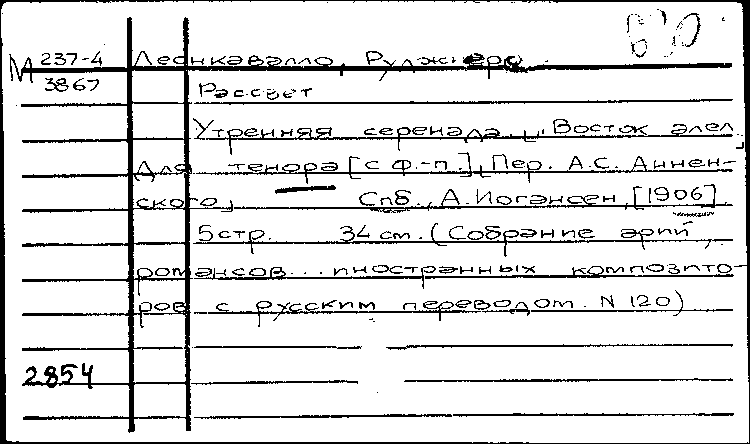 630
М 237-4 Леонкавалло, Руджиеро.
3867 Рассвет
Утренняя серенада. [„Восток алел„]
Для тенора [с ф.-п.] [Пер. А.С. Аннен-
ского] Спб., А. Иогансен, [1906].
5 стр. 34 см. (Собрание арий,
романсов... иностранных композито-
ров с русским переводом. N 120)
2854